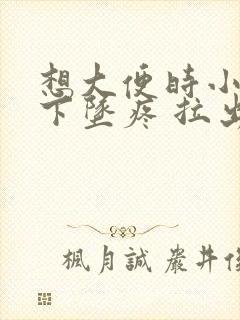 想大便时小
下墜疼 拉出
楓月誠 嚴井俊